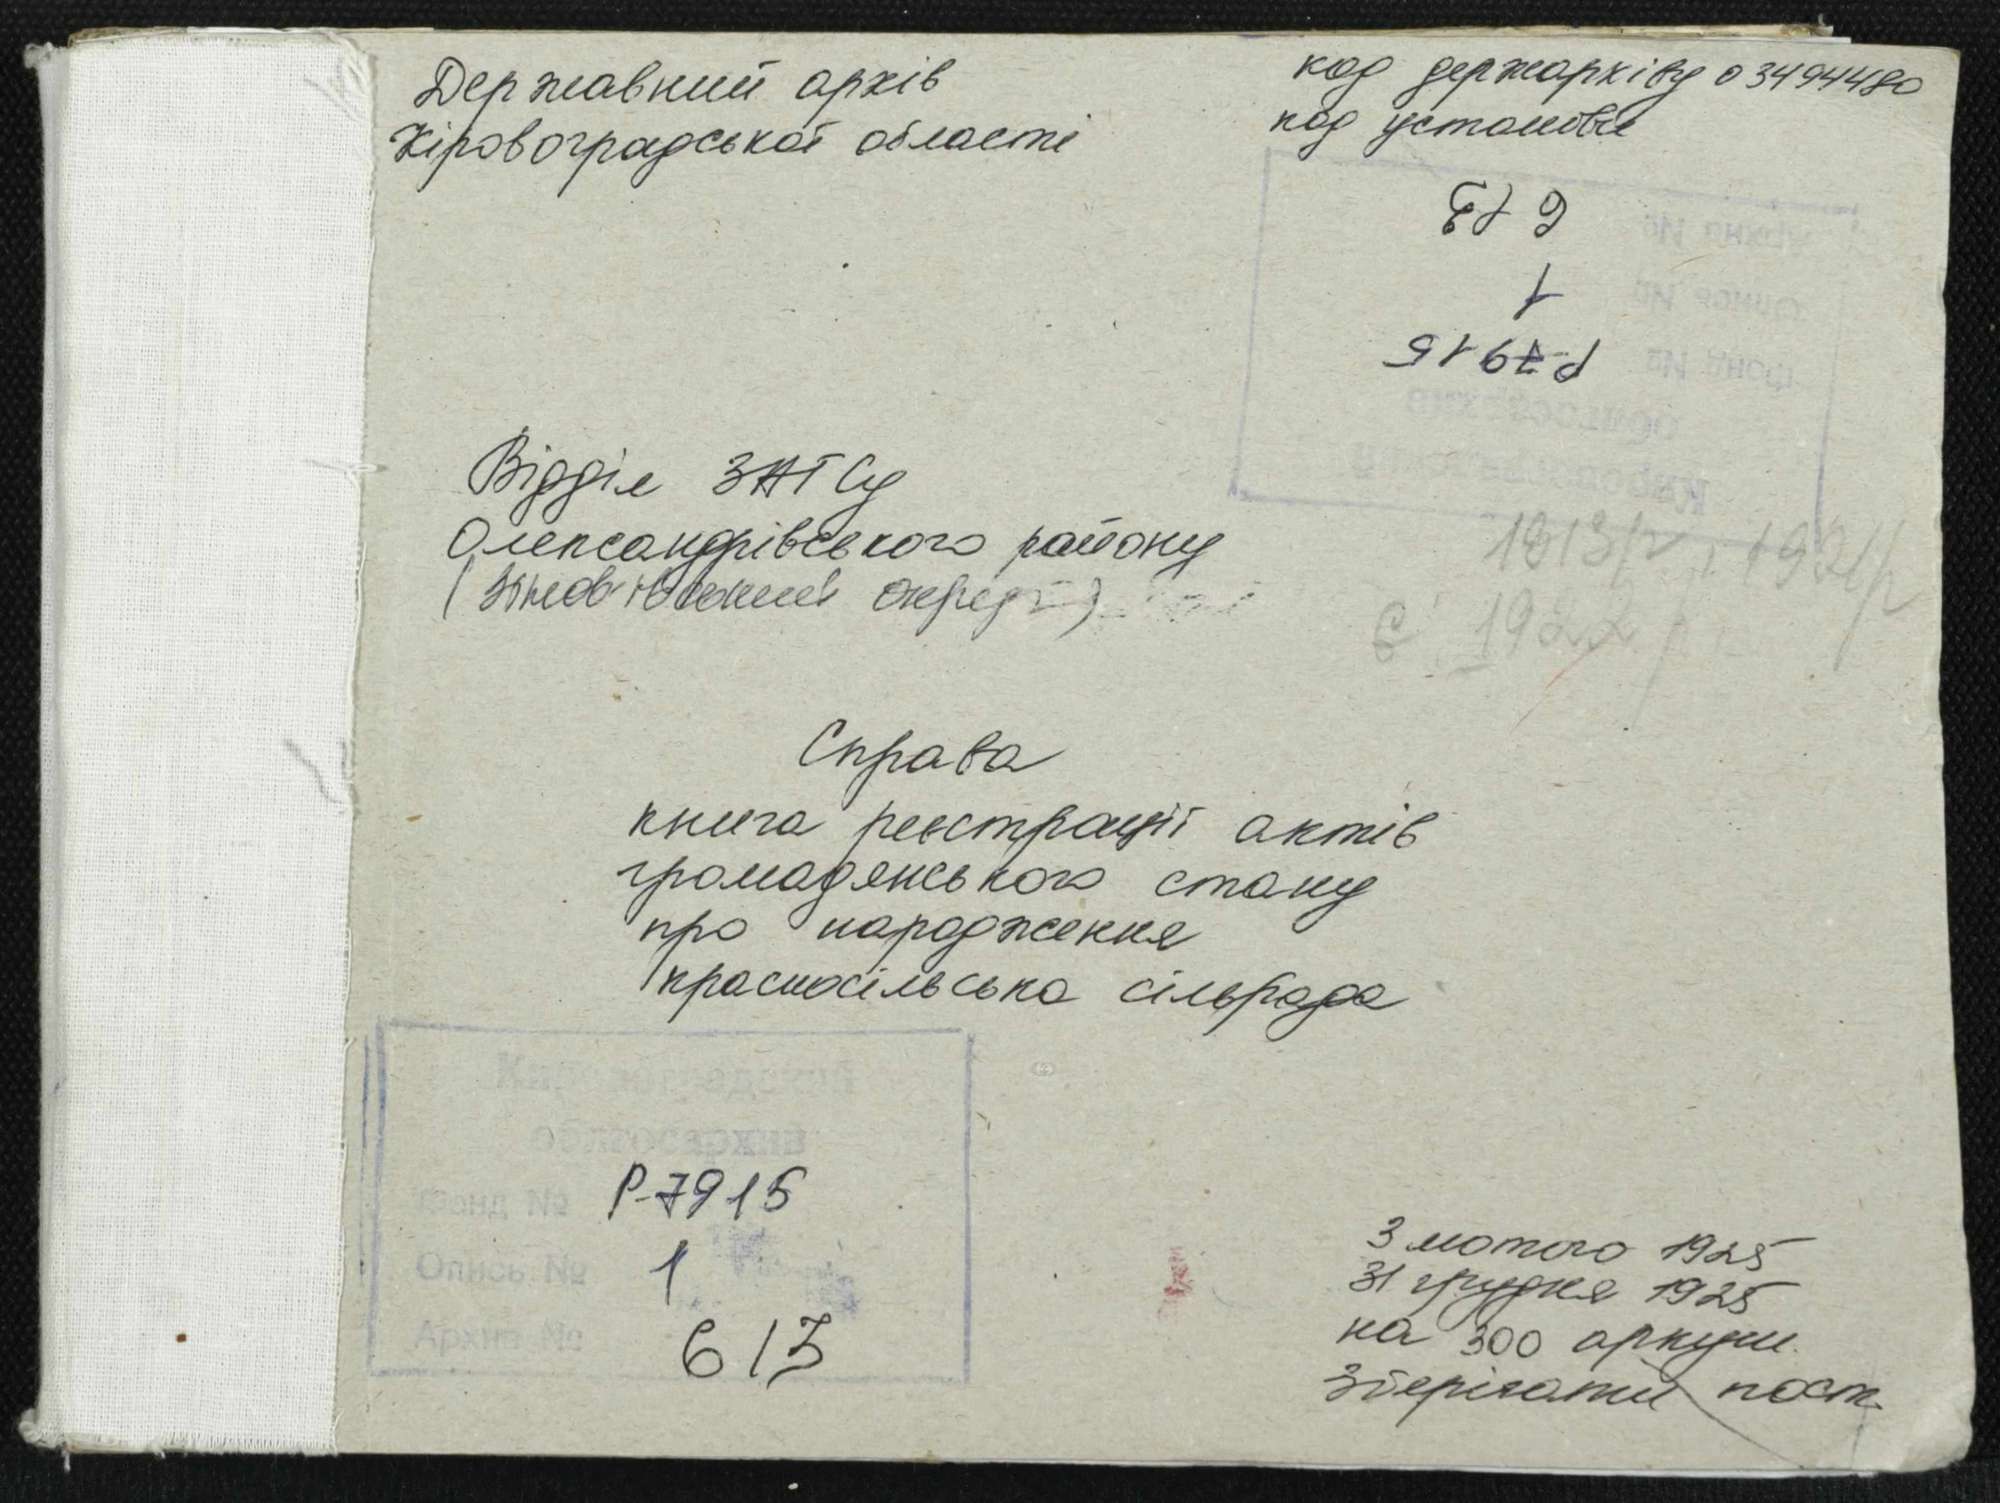 Державний архів
Кіровоградської області
код держархіву 03494480
код установи
613
1
Р-7915
Архив №
Опись №
Фонд №
облгосархив
Відділ ЗАГСу
Олександрівського району
округ
1922
Справа
книга реєстрації актів
громадянського стану
про народження
Красносільська сільрада
Кировоградский
облгосархив
Фонд № Р-7915
Опись № 1
Архив № 613
3 лютого 1925
31 грудня 1925
на 300 аркуш.
Зберігати пост.